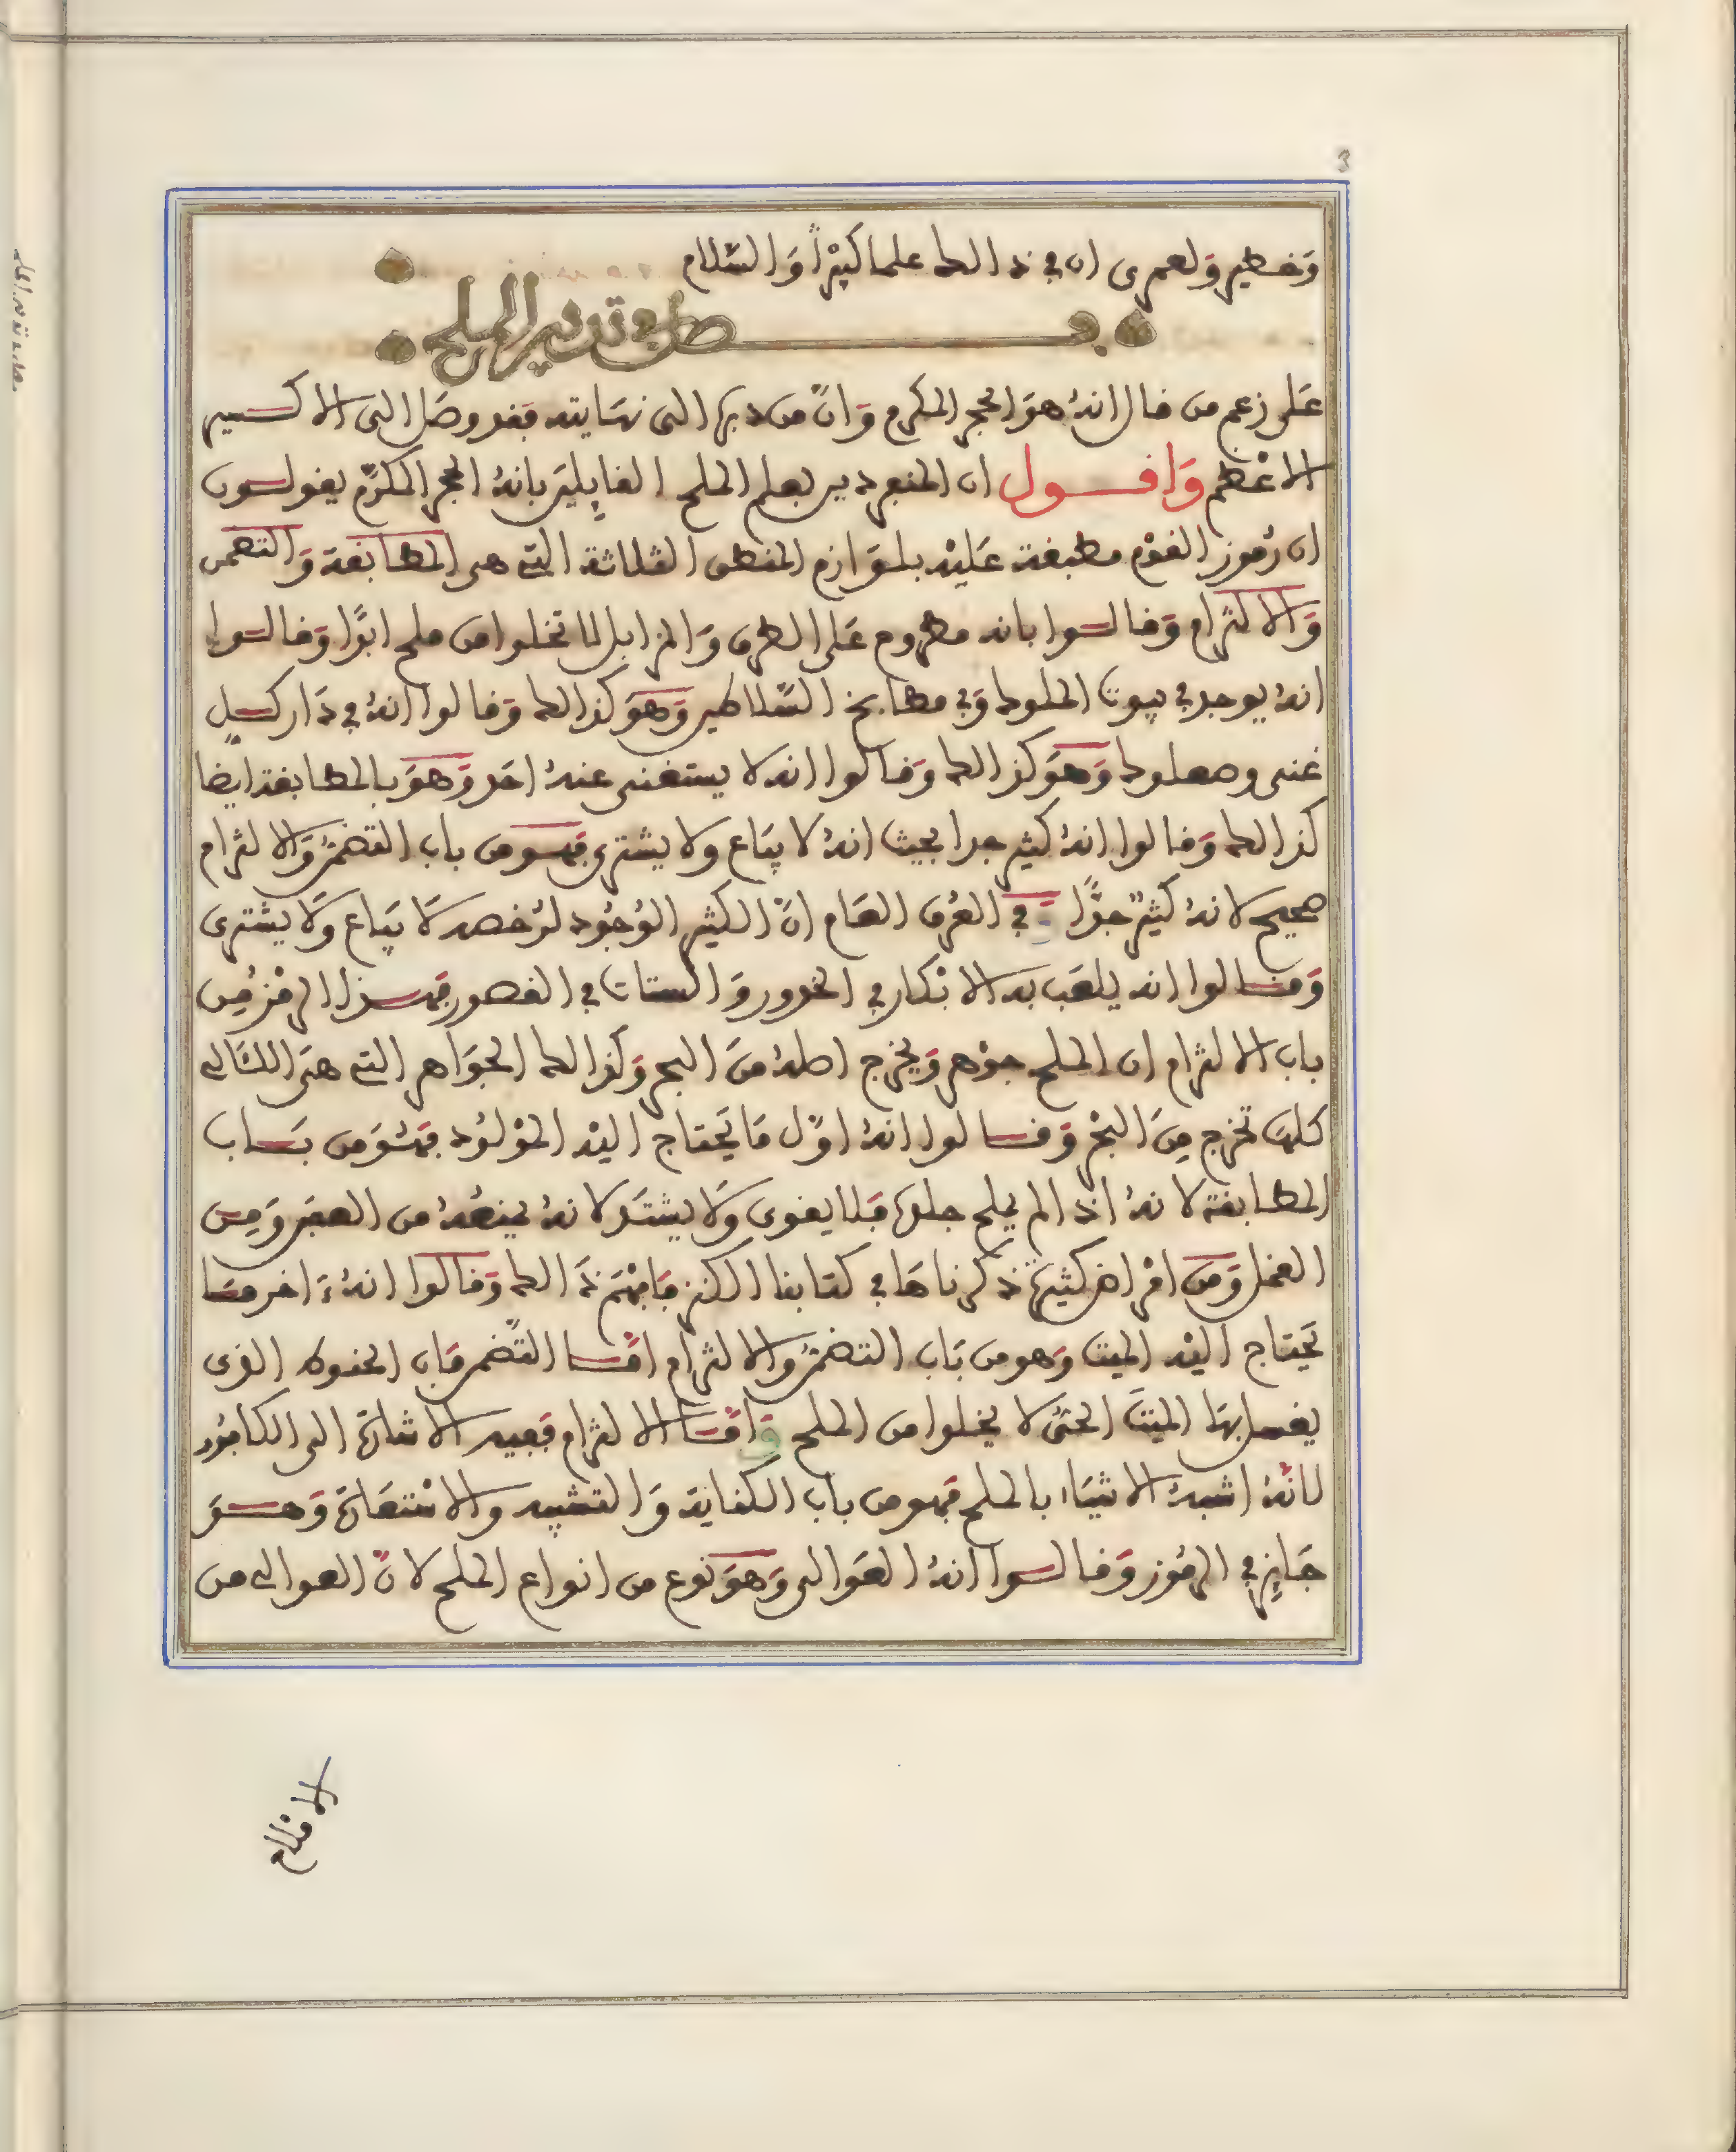 3
وَخطير وَلعمرى ان في ذالك علما كبيرًا وَالسَّلام
فصل في تدبير الملح
عَلى زعم من قال انهُ هوَ الحجر المكرم وَانَّ من دبرها الى نهايته فقد وصَل الى الاكسير
الاعْظم وَاقول ان المنفردين بعلم الملح القايلينَ بانهُ الحجر المكرّم يقولون
ان رُموز القوْم مطبقة عَليْه بلوَازم المنطق الثلاثة التي هي المطابقة وَالتضمن
وَالالتزام وَقالوا بانه مطروح عَلى الطرق وَالمزابل لا تخلوا من ملح ابدًا وَقالوا
انهُ يوجد في بيوت الملوك وَفي مطابخ السَّلاطين وَهوَ كذالك وَقالوا انهُ في دَار كلٍ
غنى وصعلوك وَهوَ كذالك وَقالوا انه لا يستغنى عنهُ احَد وَهوَ بالمطابقة ايضا
كذالك وَقالوا انهُ كثير جدا بحيث انهُ لا يبَاع ولا يشترى فهو من باب التضمن وَالالتزام
صحيح لانهُ كثير جدًّا في العُرف العَام انَّ الكثير الوُجُود لرُخصه لَا يبَاع وَلَا يشترى
وَقالوا انه يلعَب به الابْكار في الخدور وَالستات في القصور فهذا الرمْز مِن
باب الالتزام ان الملح جوْهر وَيخرج اصلهُ منَ البحر وَكذالك الجوَاهر التي هىَ اللئَالى
كلهَا تخرج مِنَ البحْر وَقالوا انهُ اوّل مَا يَحتاج اليْه الموْلوُد فهُوَ من بَاب
المطابقة لانهُ اذا لم يملح جلدهَا فلا يقوى وَلا يشتَد لانهُ يمنعُهُ من العفن وَمِن
القمل وَمن امْراض كثيرة ذكرناهَا في كتابنا الكنز فَافهَم ذَالك وَقالوا انهُ ءَاخر مَا
يَحتاج اليْه الميت وَهو من بَاب التضمن وَالالتزام امَّا التَّضمن فَان الحنوط الذى
يغسل بهَا الميتَ الحىُّ لا يخلوا من الملح وَامَّا الالتزام فَفيه الاشارَة الى الكافُور
لانّهُ اشبهُ الاشيَاء بالملح فهو من باب الكفاية وَالتشبيه والاسْتعَارَة وَهوَ
جَايز في الرمُوز وَقالوا انهُ الغَوالى وَهوَ نوع من انواع الملح لانّ الغوالى من
الاملاح